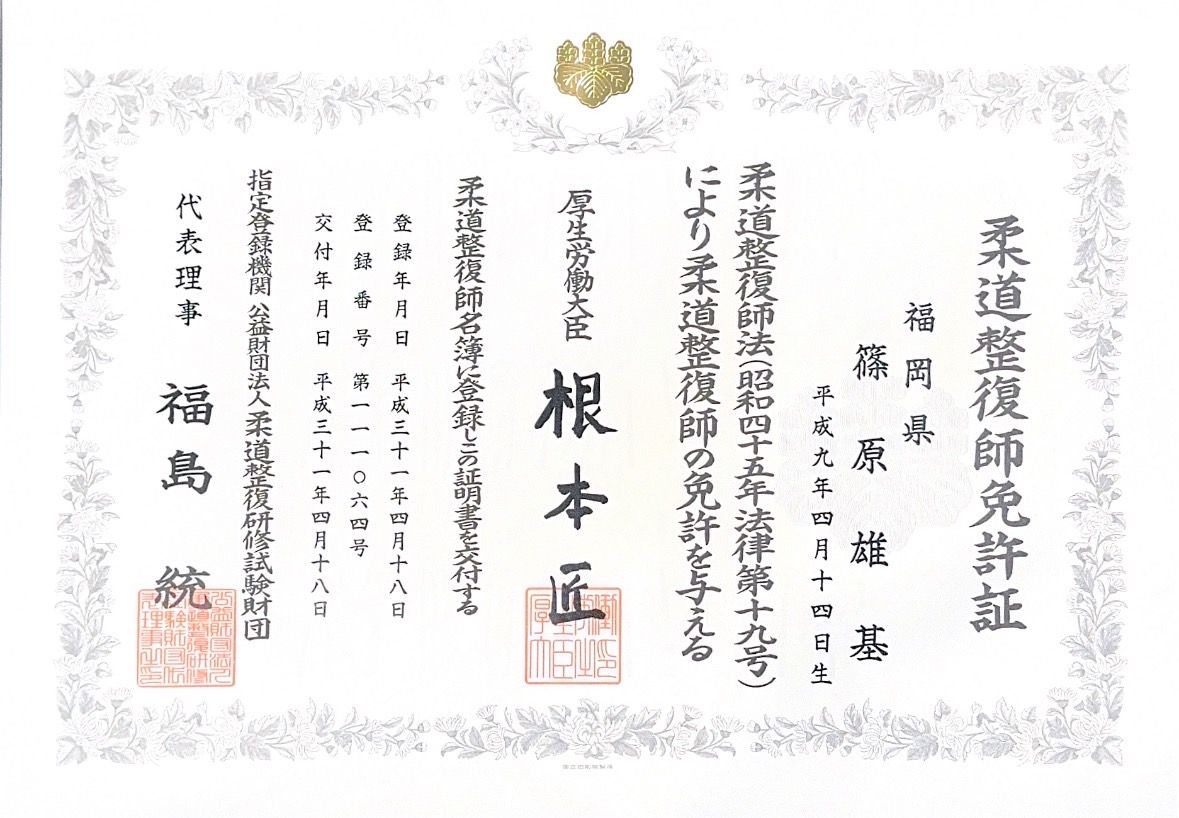 柔道整復師免許証
福岡県
篠原雄基
平成九年四月十四日生
柔道整復師法(昭和四十五年法律第十九号)
により柔道整復師の免許を与える
厚生労働大臣 根本匠
柔道整復師名簿に登録しこの証明書を交付する
登録年月日 平成三十一年四月十八日
登録番号 第一一一〇六四号
交付年月日 平成三十一年四月十八日
指定登録機関 公益財団法人 柔道整復研修試験財団
代表理事 福島 統